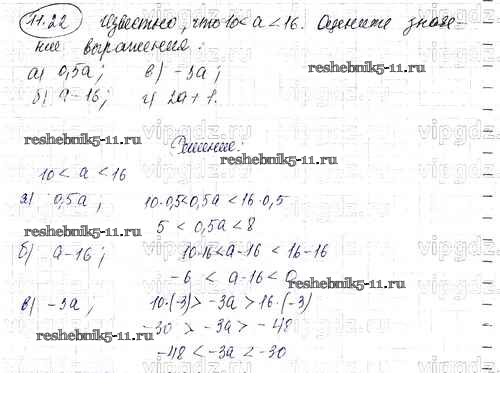 11.22 Известно, что 10 < a < 16. Оцените значе-
ние выражения:
а) 0,5a; в) -3a;
б) a-16; г) 2a+1.
reshebnik5-11.ru
reshebnik5-11.ru
Решение:
10 < a < 16
reshebnik5-11.ru
а) 0,5a; 10·0,5<0,5a < 16·0,5
5 < 0,5a < 8
б) a-16; 10-16<a-16 < 16-16
reshebnik5-11.ru
-6 < a-16 < 0
в) -3a; 10·(-3) > -3a > 16·(-3)
-30 > -3a > -48
reshebnik5-11.ru
-48 < -3a < -30